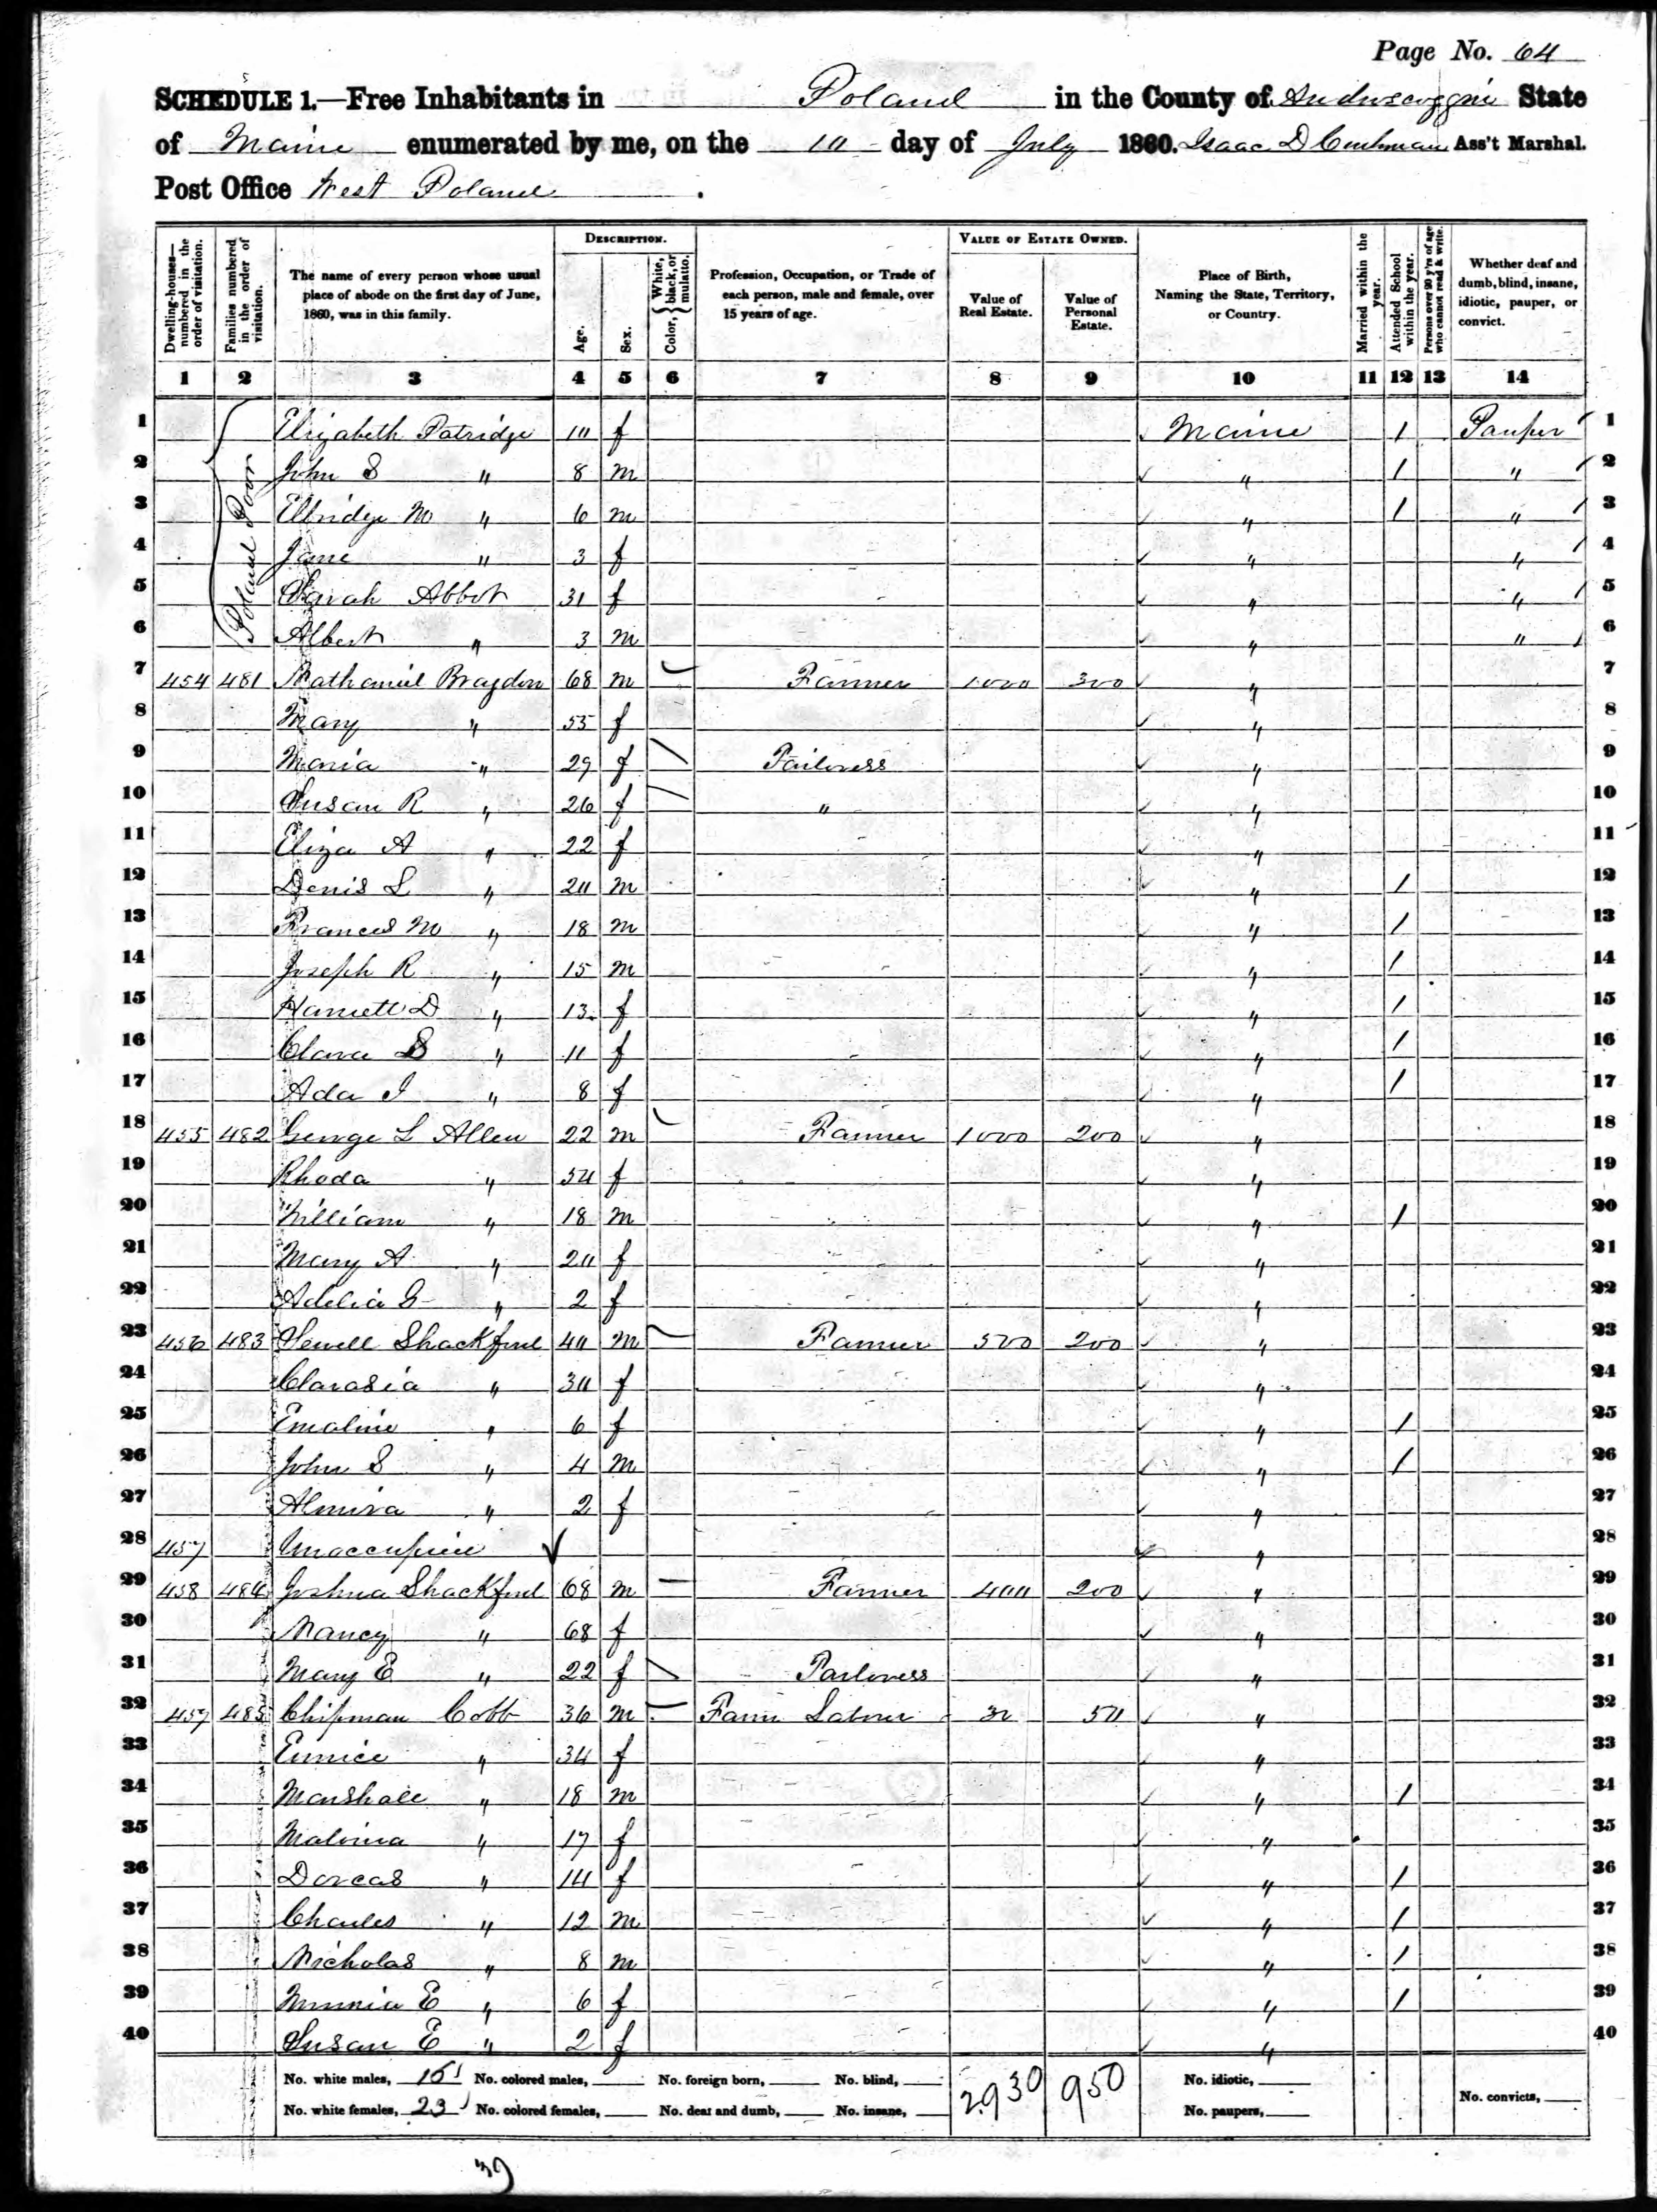 Page No. 64
SCHEDULE 1.—Free Inhabitants in Poland in the County of Androscoggin State
of Maine enumerated by me, on the 10 day of July 1860. Isaac D Cushman Ass't Marshal.
Post Office West Poland.
Dwelling-houses—numbered in the order of visitation. Families numbered in the order of visitation. The name of every person whose usual place of abode on the first day of June, 1860, was in this family. DESCRIPTION. Age. Sex. Color, { White, black, or mulatto. Profession, Occupation, or Trade of each person, male and female, over 15 years of age. VALUE OF ESTATE OWNED. Value of Real Estate. Value of Personal Estate. Place of Birth, Naming the State, Territory, or Country. Married within the year. Attended School within the year. Persons over 20 y'rs of age who cannot read & write. Whether deaf and dumb, blind, insane, idiotic, pauper, or convict.
1 2 3 4 5 6 7 8 9 10 11 12 13 14
Poland Poor
1 Elizabeth Patridge 10 f Maine / Pauper 1
2 John S " 8 m " / " 2
3 Elbridge M " 6 m " / " 3
4 Jane " 3 f " " 4
5 Sarah Abbot 31 f " " 5
6 Albert " 3 m " " 6
7 454 481 Nathaniel Bragdon 68 m Farmer 1000 300 " 7
8 Mary " 55 f " 8
9 Maria " 29 f Tailoress " 9
10 Susan R " 26 f " " 10
11 Eliza A " 22 f " 11
12 Denis L " 20 m " / 12
13 Frances M " 18 m " / 13
14 Joseph R " 15 m " / 14
15 Harriett D " 13 f " / 15
16 Clara S " 11 f " / 16
17 Ada I " 8 f " / 17
18 455 482 George L Allen 22 m Farmer 1000 200 " 18
19 Rhoda " 50 f " 19
20 William " 18 m " / 20
21 Mary A " 20 f " 21
22 Adelia G " 2 f " 22
23 456 483 Sewell Shackford 40 m Farmer 500 200 " 23
24 Clarasia " 30 f " 24
25 Emaline " 6 f " / 25
26 John S " 4 m " / 26
27 Almira " 2 f " 27
28 457 Unoccupied " 28
29 458 484 Joshua Shackford 68 m Farmer 400 200 " 29
30 Nancy " 68 f " 30
31 Mary E " 22 f Tailoress " 31
32 459 485 Chipman Cobb 36 m Farm Labour 30 50 " 32
33 Eunice " 34 f " 33
34 Marshall " 18 m " / 34
35 Malvina " 17 f " 35
36 Dorcas " 14 f " / 36
37 Charles " 12 m " / 37
38 Nicholas " 8 m " / 38
39 E " 6 f " / 39
40 Susan E " 2 f " 40
No. white males, 16 No. colored males, No. foreign born, No. blind, 2930 950 No. idiotic,
No. white females, 23 No. colored females, No. deaf and dumb, No. insane, No. paupers, No. convicts,
39